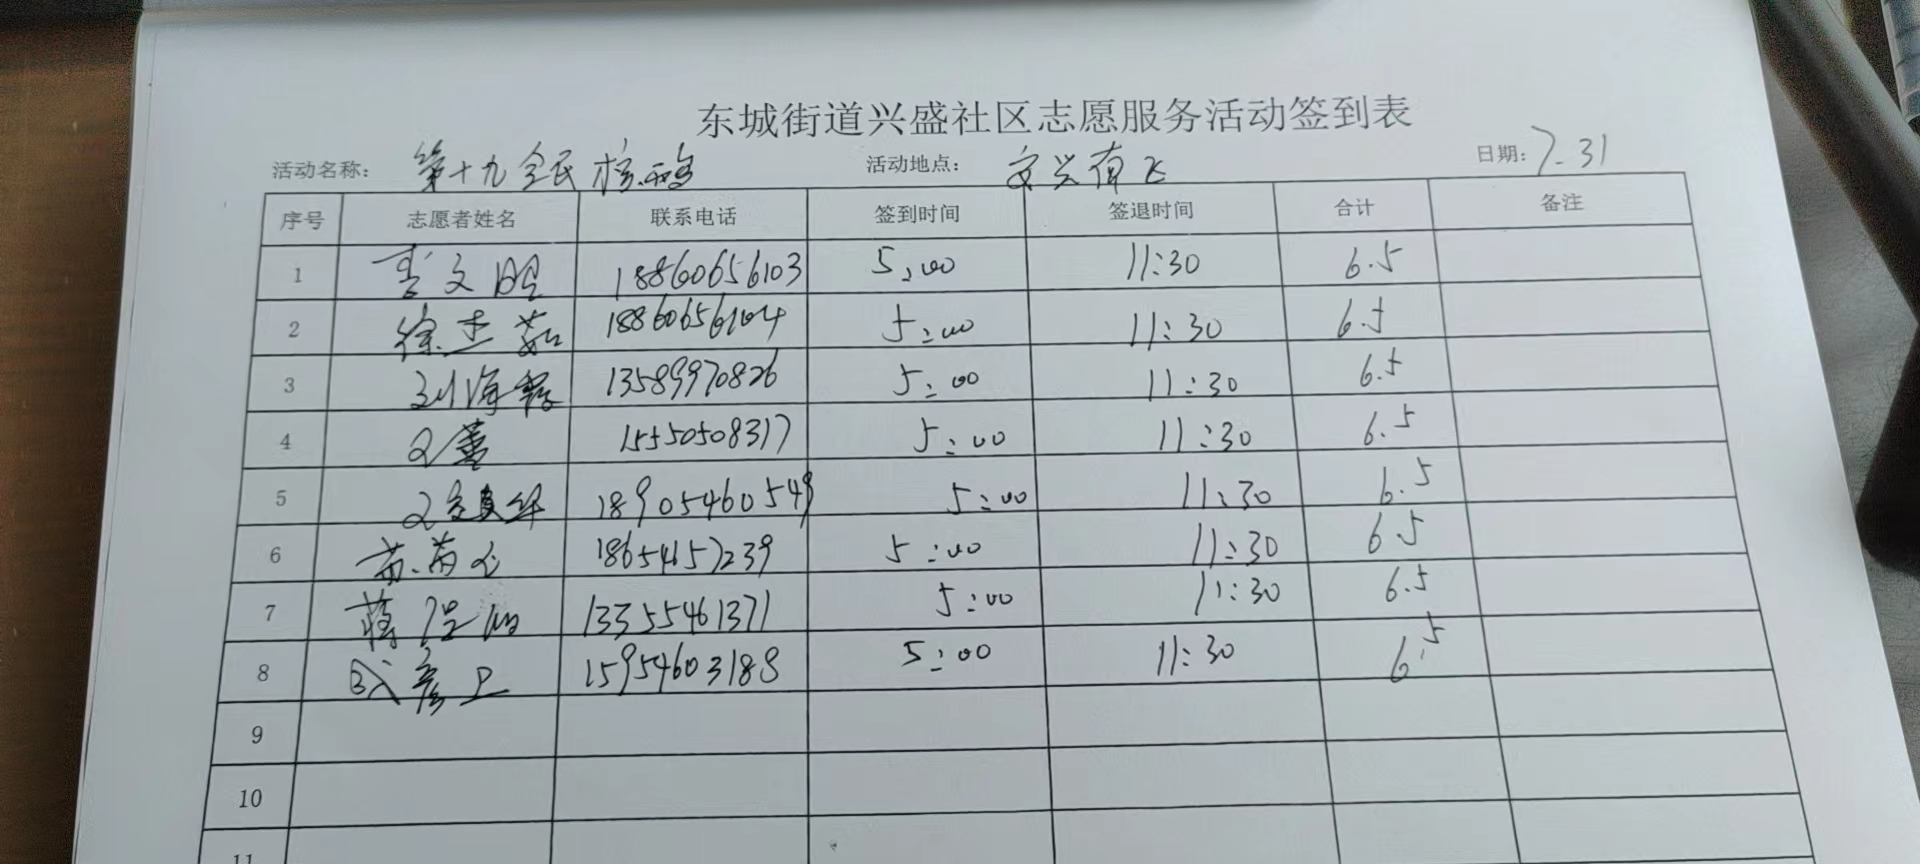 东城街道兴盛社区志愿服务活动签到表
活动名称: 第十九全民核 活动地点: 文兴 日期: 7.31
序号 志愿者姓名 联系电话 签到时间 签退时间 合计 备注
1 李文明 18860656103 5:00 11:30 6.5
2 徐志茹 18860656104 5:00 11:30 6.5
3 刘海霞 13589970826 5:00 11:30 6.5
4 15550508317 5:00 11:30 6.5
5 18905460549 5:00 11:30 6.5
6 18654657239 5:00 11:30 6.5
7 蒋 13355461371 5:00 11:30 6.5
8 15954603188 5:00 11:30 6.5
9
10
11